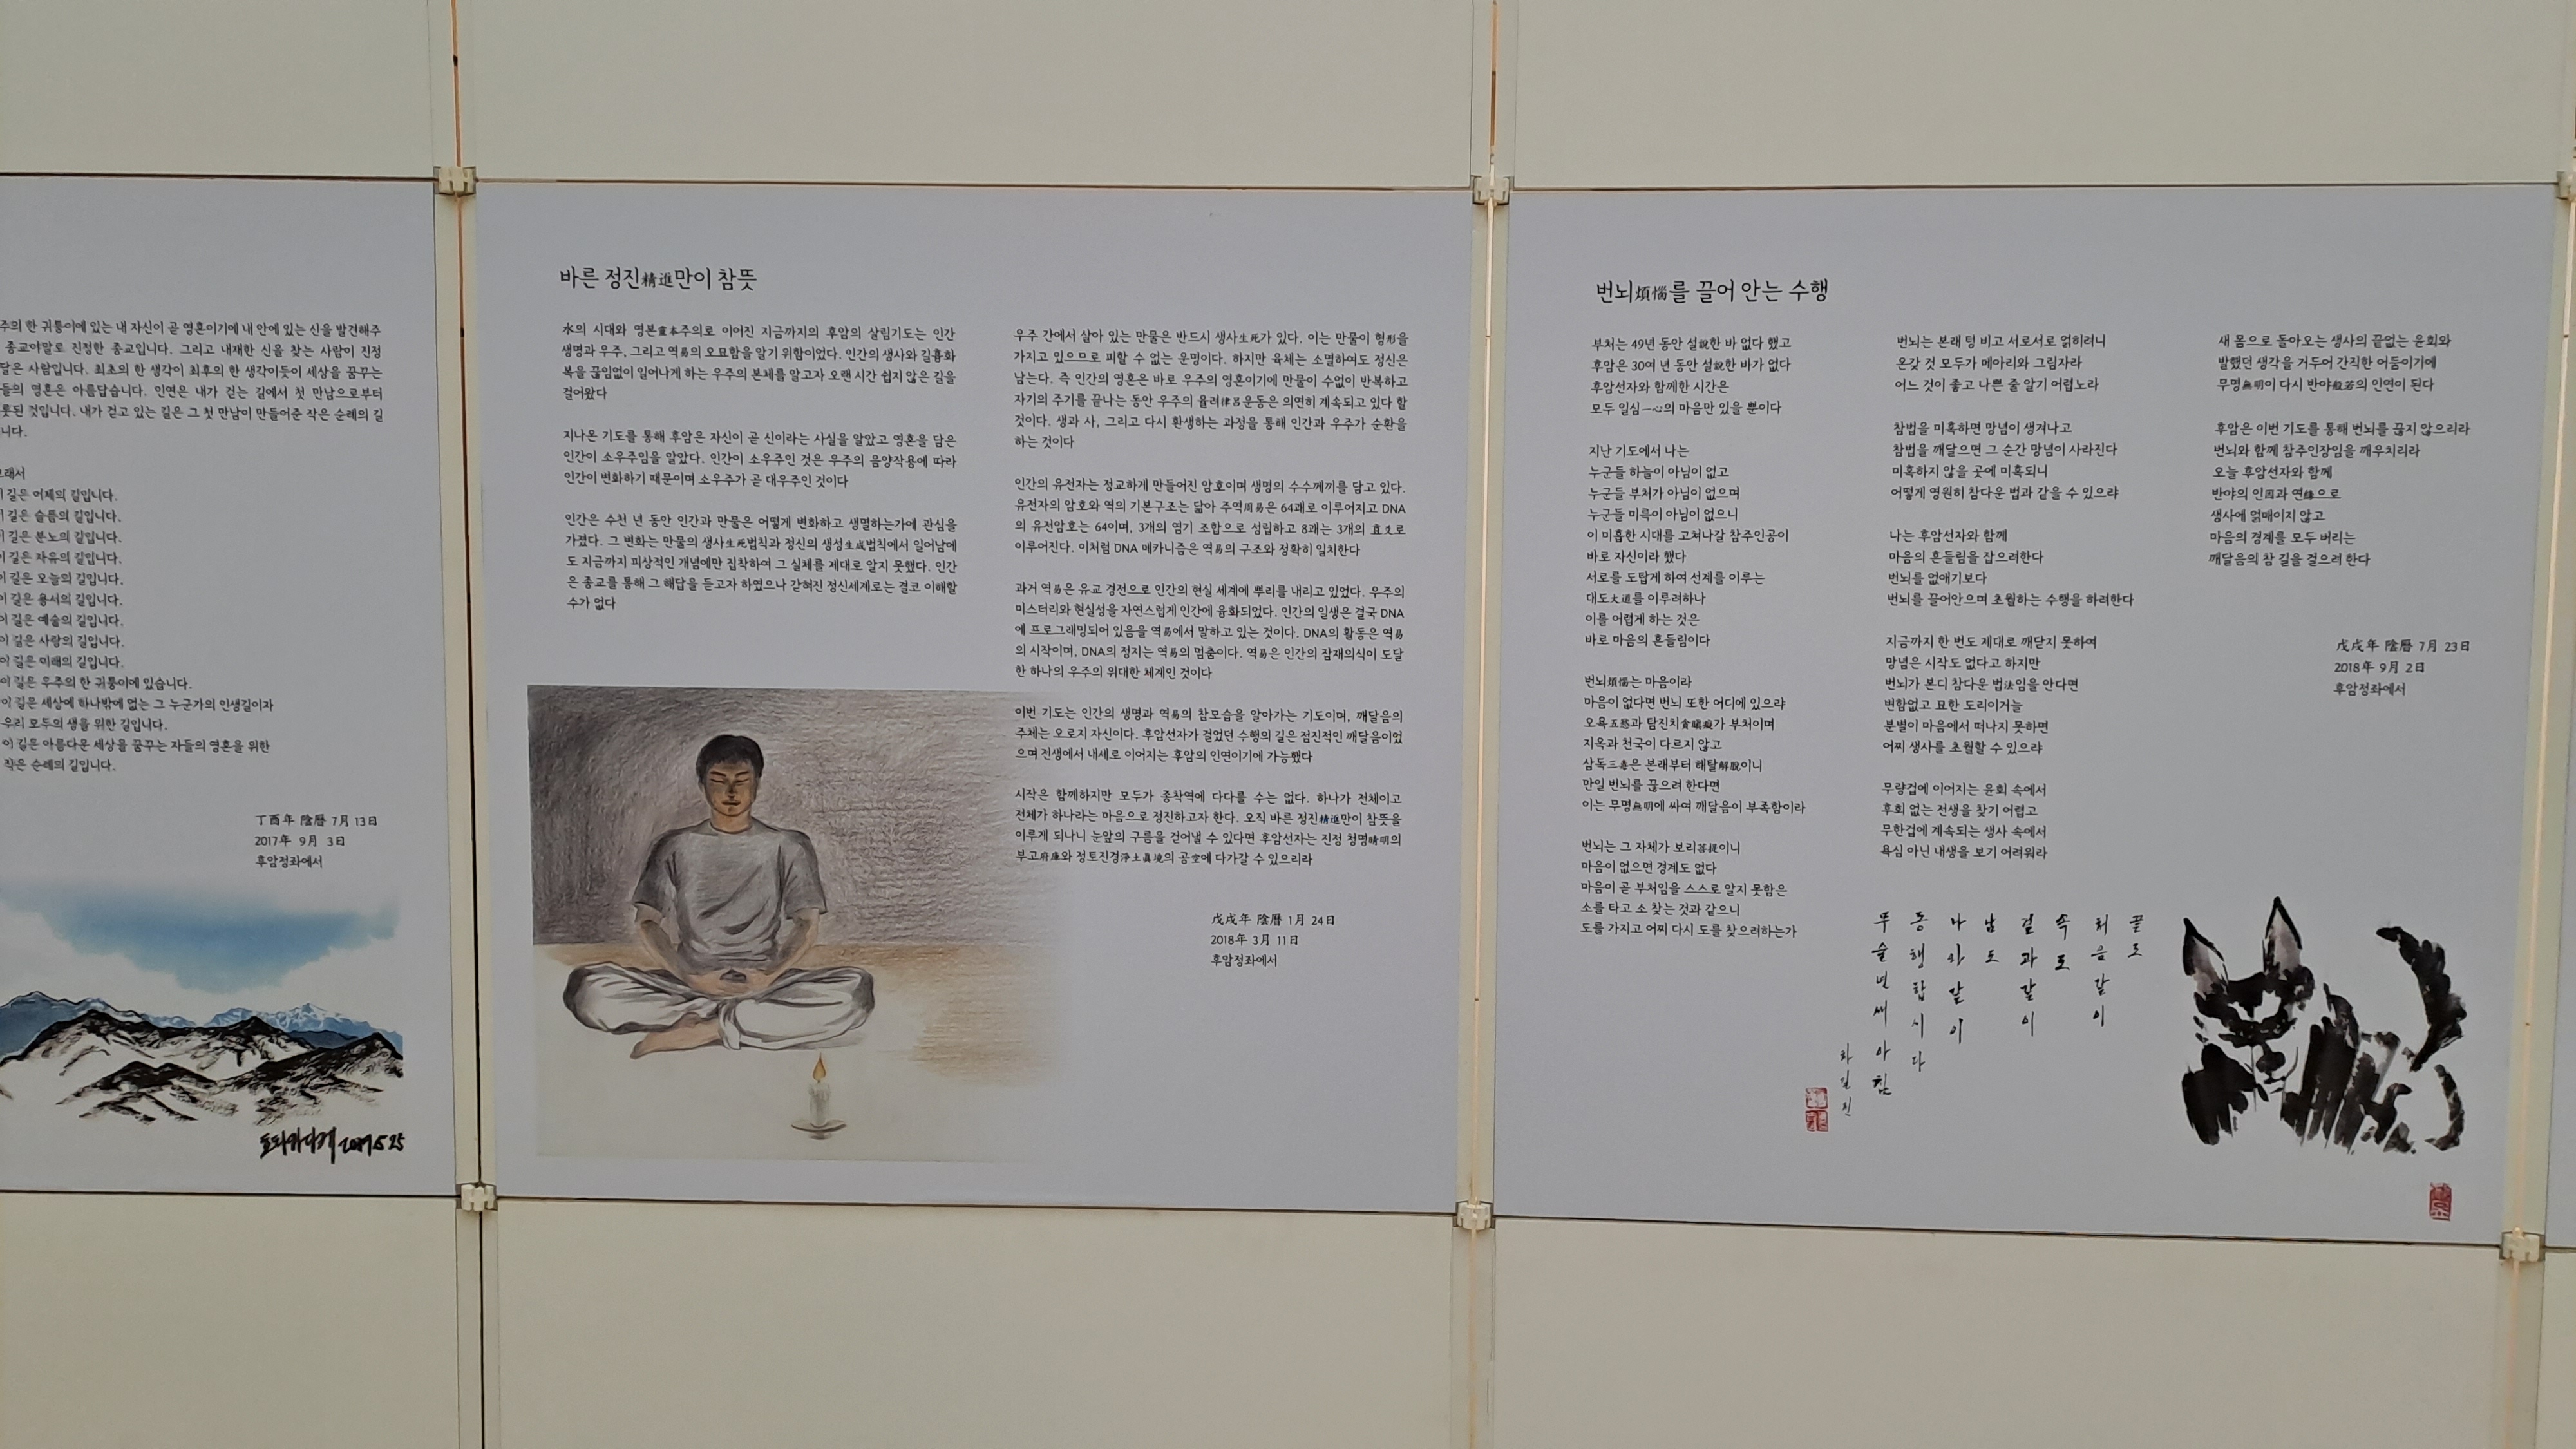 주의 한 귀퉁이에 있는 내 자신이 곧 영혼이기에 내 안에 있는 신을 발견해주
종교야말로 진정한 종교입니다. 그리고 내재한 신을 찾는 사람이 진정
달은 사람입니다. 최초의 한 생각이 최후의 한 생각이듯이 세상을 꿈꾸는
들의 영혼은 아름답습니다. 인연은 내가 걷는 길에서 첫 만남으로부터
롯된 것입니다. 내가 걷고 있는 길은 그 첫 만남이 만들어준 작은 순례의 길
니다.
그래서
길은 어제의 길입니다.
길은 슬픔의 길입니다.
길은 분노의 길입니다.
길은 자유의 길입니다.
길은 오늘의 길입니다.
이 길은 용서의 길입니다.
이 길은 예술의 길입니다.
이 길은 사랑의 길입니다.
이 길은 미래의 길입니다.
이 길은 우주의 한 귀퉁이에 있습니다.
이 길은 세상에 하나밖에 없는 그 누군가의 인생길이자
우리 모두의 생을 위한 길입니다.
이 길은 아름다운 세상을 꿈꾸는 자들의 영혼을 위한
작은 순례의 길입니다.
丁酉年 陰曆 7月 13日
2017年 9月 3日
후암정좌에서
바른 정진精進만이 참뜻
水의 시대와 영본靈本주의로 이어진 지금까지의 후암의 살림기도는 인간
생명과 우주, 그리고 역易의 오묘함을 알기 위함이었다. 인간의 생사와 길흉화
복을 끊임없이 일어나게 하는 우주의 본체를 알고자 오랜 시간 쉽지 않은 길을
걸어왔다
지나온 기도를 통해 후암은 자신이 곧 신이라는 사실을 알았고 영혼을 담은
인간이 소우주임을 알았다. 인간이 소우주인 것은 우주의 음양작용에 따라
인간이 변화하기 때문이며 소우주가 곧 대우주인 것이다
인간은 수천 년 동안 인간과 만물은 어떻게 변화하고 생멸하는가에 관심을
가졌다. 그 변화는 만물의 생사生死법칙과 정신의 생성生成법칙에서 일어남에
도 지금까지 피상적인 개념에만 집착하여 그 실체를 제대로 알지 못했다. 인간
은 종교를 통해 그 해답을 듣고자 하였으나 갇혀진 정신세계로는 결코 이해할
수가 없다
우주 간에서 살아 있는 만물은 반드시 생사生死가 있다. 이는 만물이 형形을
가지고 있으므로 피할 수 없는 운명이다. 하지만 육체는 소멸하여도 정신은
남는다. 즉 인간의 영혼은 바로 우주의 영혼이기에 만물이 수없이 반복하고
자기의 주기를 끝나는 동안 우주의 율려律呂운동은 의연히 계속되고 있다 할
것이다. 생과 사, 그리고 다시 환생하는 과정을 통해 인간과 우주가 순환을
하는 것이다
인간의 유전자는 정교하게 만들어진 암호이며 생명의 수수께끼를 담고 있다.
유전자의 암호와 역의 기본구조는 닮아 주역周易은 64괘로 이루어지고 DNA
의 유전암호는 64이며, 3개의 염기 조합으로 성립하고 8괘는 3개의 효爻로
이루어진다. 이처럼 DNA 메카니즘은 역易의 구조와 정확히 일치한다
과거 역易은 유교 경전으로 인간의 현실 세계에 뿌리를 내리고 있었다. 우주의
미스터리와 현실성을 자연스럽게 인간에 융화되었다. 인간의 일생은 결국 DNA
에 프로그래밍되어 있음을 역易에서 말하고 있는 것이다. DNA의 활동은 역易
의 시작이며, DNA의 정지는 역易의 멈춤이다. 역易은 인간의 잠재의식이 도달
한 하나의 우주의 위대한 체계인 것이다
이번 기도는 인간의 생명과 역易의 참모습을 알아가는 기도이며, 깨달음의
주체는 오로지 자신이다. 후암선자가 걸었던 수행의 길은 점진적인 깨달음이었
으며 전생에서 내세로 이어지는 후암의 인연이기에 가능했다
시작은 함께하지만 모두가 종착역에 다다를 수는 없다. 하나가 전체이고
전체가 하나라는 마음으로 정진하고자 한다. 오직 바른 정진精進만이 참뜻을
이루게 되나니 눈앞의 구름을 걷어낼 수 있다면 후암선자는 진정 청명晴明의
부고府庫와 정토진경淨土眞境의 공空에 다가갈 수 있으리라
戊戌年 陰曆 1月 24日
2018年 3月 11日
후암정좌에서
번뇌煩惱를 끌어 안는 수행
부처는 49년 동안 설說한 바 없다 했고
후암은 30여 년 동안 설說한 바가 없다
후암선자와 함께한 시간은
모두 일심一心의 마음만 있을 뿐이다
지난 기도에서 나는
누군들 하늘이 아님이 없고
누군들 부처가 아님이 없으며
누군들 미륵이 아님이 없으니
이 미흡한 시대를 고쳐나갈 참주인공이
바로 자신이라 했다
서로를 도탑게 하여 선계를 이루는
대도大道를 이루려하나
이를 어렵게 하는 것은
바로 마음의 흔들림이다
번뇌煩惱는 마음이라
마음이 없다면 번뇌 또한 어디에 있으랴
오욕五慾과 탐진치貪瞋癡가 부처이며
지옥과 천국이 다르지 않고
삼독三毒은 본래부터 해탈解脫이니
만일 번뇌를 끊으려 한다면
이는 무명無明에 싸여 깨달음이 부족함이라
번뇌는 그 자체가 보리菩提이니
마음이 없으면 경계도 없다
마음이 곧 부처임을 스스로 알지 못함은
소를 타고 소 찾는 것과 같으니
도를 가지고 어찌 다시 도를 찾으려하는가
번뇌는 본래 텅 비고 서로서로 얽히려니
온갖 것 모두가 메아리와 그림자라
어느 것이 좋고 나쁜 줄 알기 어렵노라
참법을 미혹하면 망념이 생겨나고
참법을 깨달으면 그 순간 망념이 사라진다
미혹하지 않을 곳에 미혹되니
어떻게 영원히 참다운 법과 같을 수 있으랴
나는 후암선자와 함께
마음의 흔들림을 잡으려한다
번뇌를 없애기보다
번뇌를 끌어안으며 초월하는 수행을 하려한다
지금까지 한 번도 제대로 깨닫지 못하여
망념은 시작도 없다고 하지만
번뇌가 본디 참다운 법法임을 안다면
변함없고 묘한 도리이거늘
분별이 마음에서 떠나지 못하면
어찌 생사를 초월할 수 있으랴
무량겁에 이어지는 윤회 속에서
후회 없는 전생을 찾기 어렵고
무한겁에 계속되는 생사 속에서
욕심 아닌 내생을 보기 어려워라
새 몸으로 돌아오는 생사의 끝없는 윤회와
발했던 생각을 거두어 간직한 어둠이기에
무명無明이 다시 반야般若의 인연이 된다
후암은 이번 기도를 통해 번뇌를 끊지 않으리라
번뇌와 함께 참주인장임을 깨우치리라
오늘 후암선자와 함께
반야의 인因과 연緣으로
생사에 얽매이지 않고
마음의 경계를 모두 버리는
깨달음의 참 길을 걸으려 한다
戊戌年 陰曆 7月 23日
2018年 9月 2日
후암정좌에서
끝도
처음같이
속도
겉과같이
남도
나와같이
동행합시다
무술년새아침
차길진